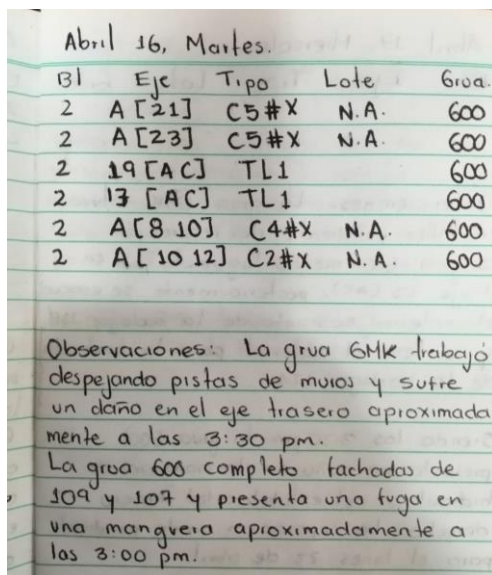 Abril 16, Martes.
Bl Eje Tipo Lote Grua.
2 A [21] C5#X N.A. 600
2 A [23] C5#X N.A. 600
2 19 [AC] TL1 600
2 17 [AC] TL1 600
2 A[8 10] C4#X N.A. 600
2 A[10 12] C2#X N.A. 600
Observaciones: La grua GMK trabajó
despejando pistas de muros y sufre
un daño en el eje trasero aproximada
mente a las 3:30 pm.
La grua 600 completo fachadas de
109 y 107 y presenta una fuga en
una manguera aproximadamente a
las 3:00 pm.